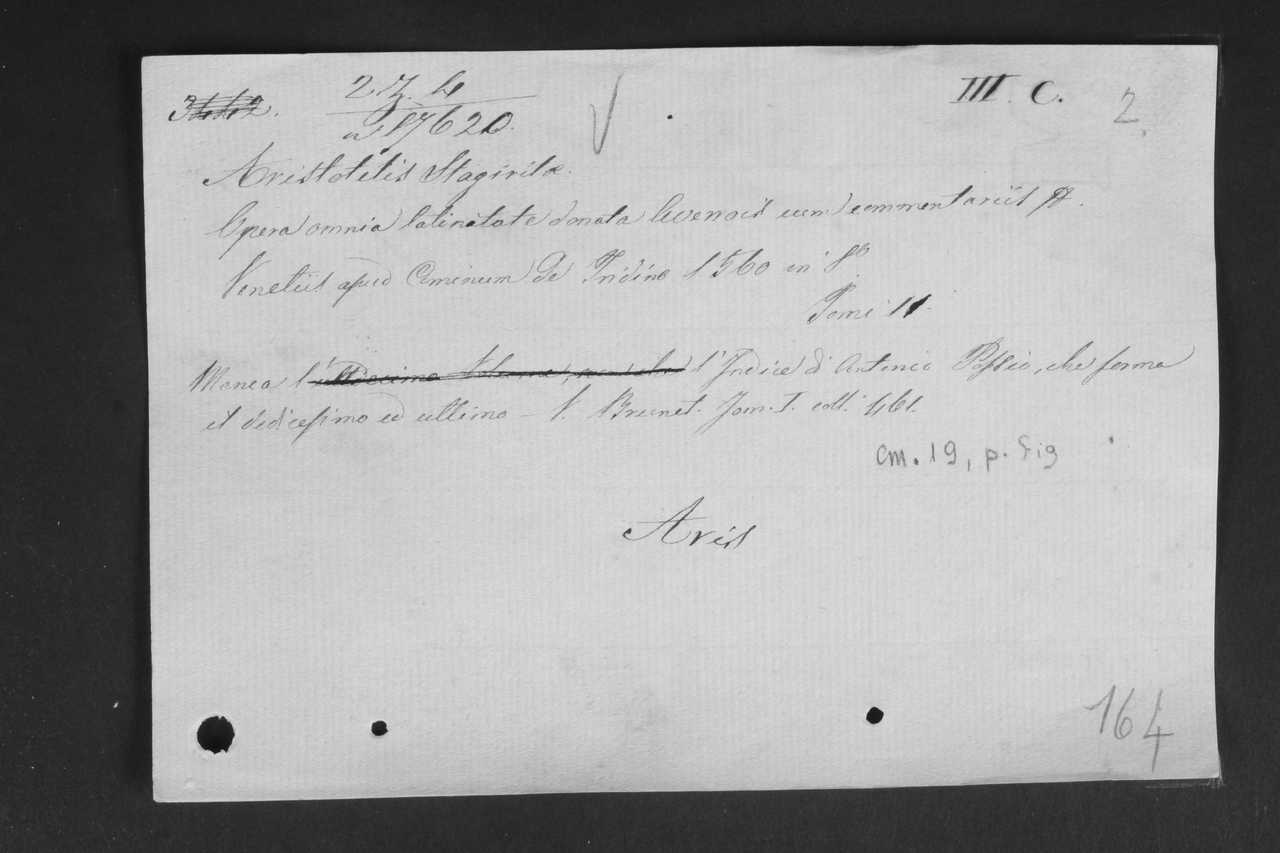 2. 7. 4
a 17620.
III. C.
2.
Aristotelis Stagiritæ.
Opera omnia latinitate donata Averrois cum commentariis
Venetiis apud Cominum De Tridino 1560 in 8º.
Tomi 11.
Manca l' l'Indice di Antonio Possio, che forma
il dodicesimo ed ultimo - V. Brunet. Tom. I. coll. 461.
cm. 19, p. fig
Aris
164